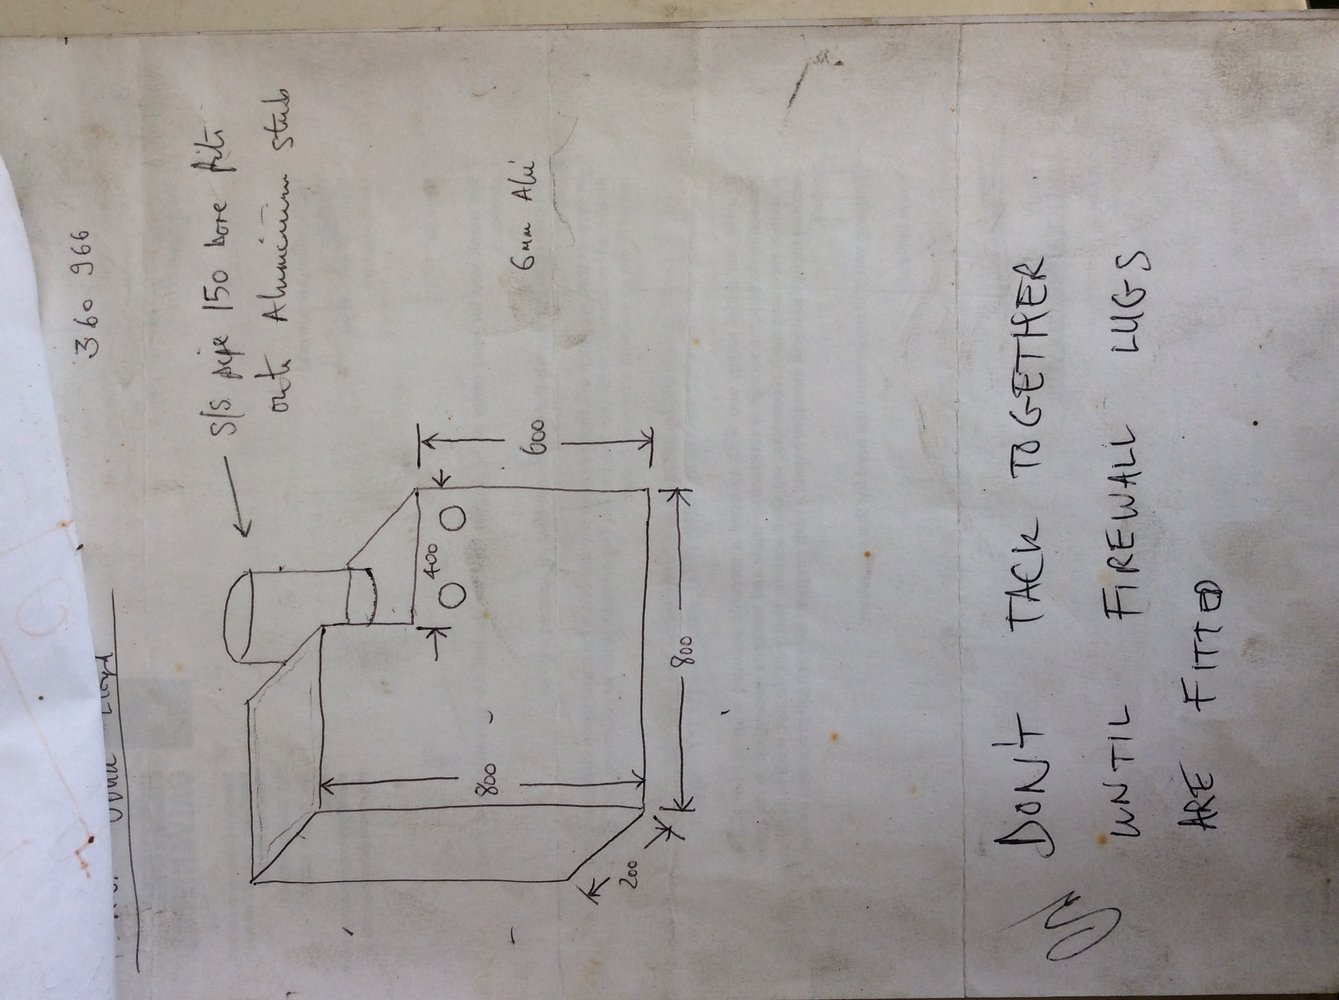 360 966
S/S pipe 150 bore fits
onto Aluminium stub
6mm Ali
600
400
800
800
200
DON'T TACK TOGETHER
UNTIL FIREWALL LUGS
ARE FITTED